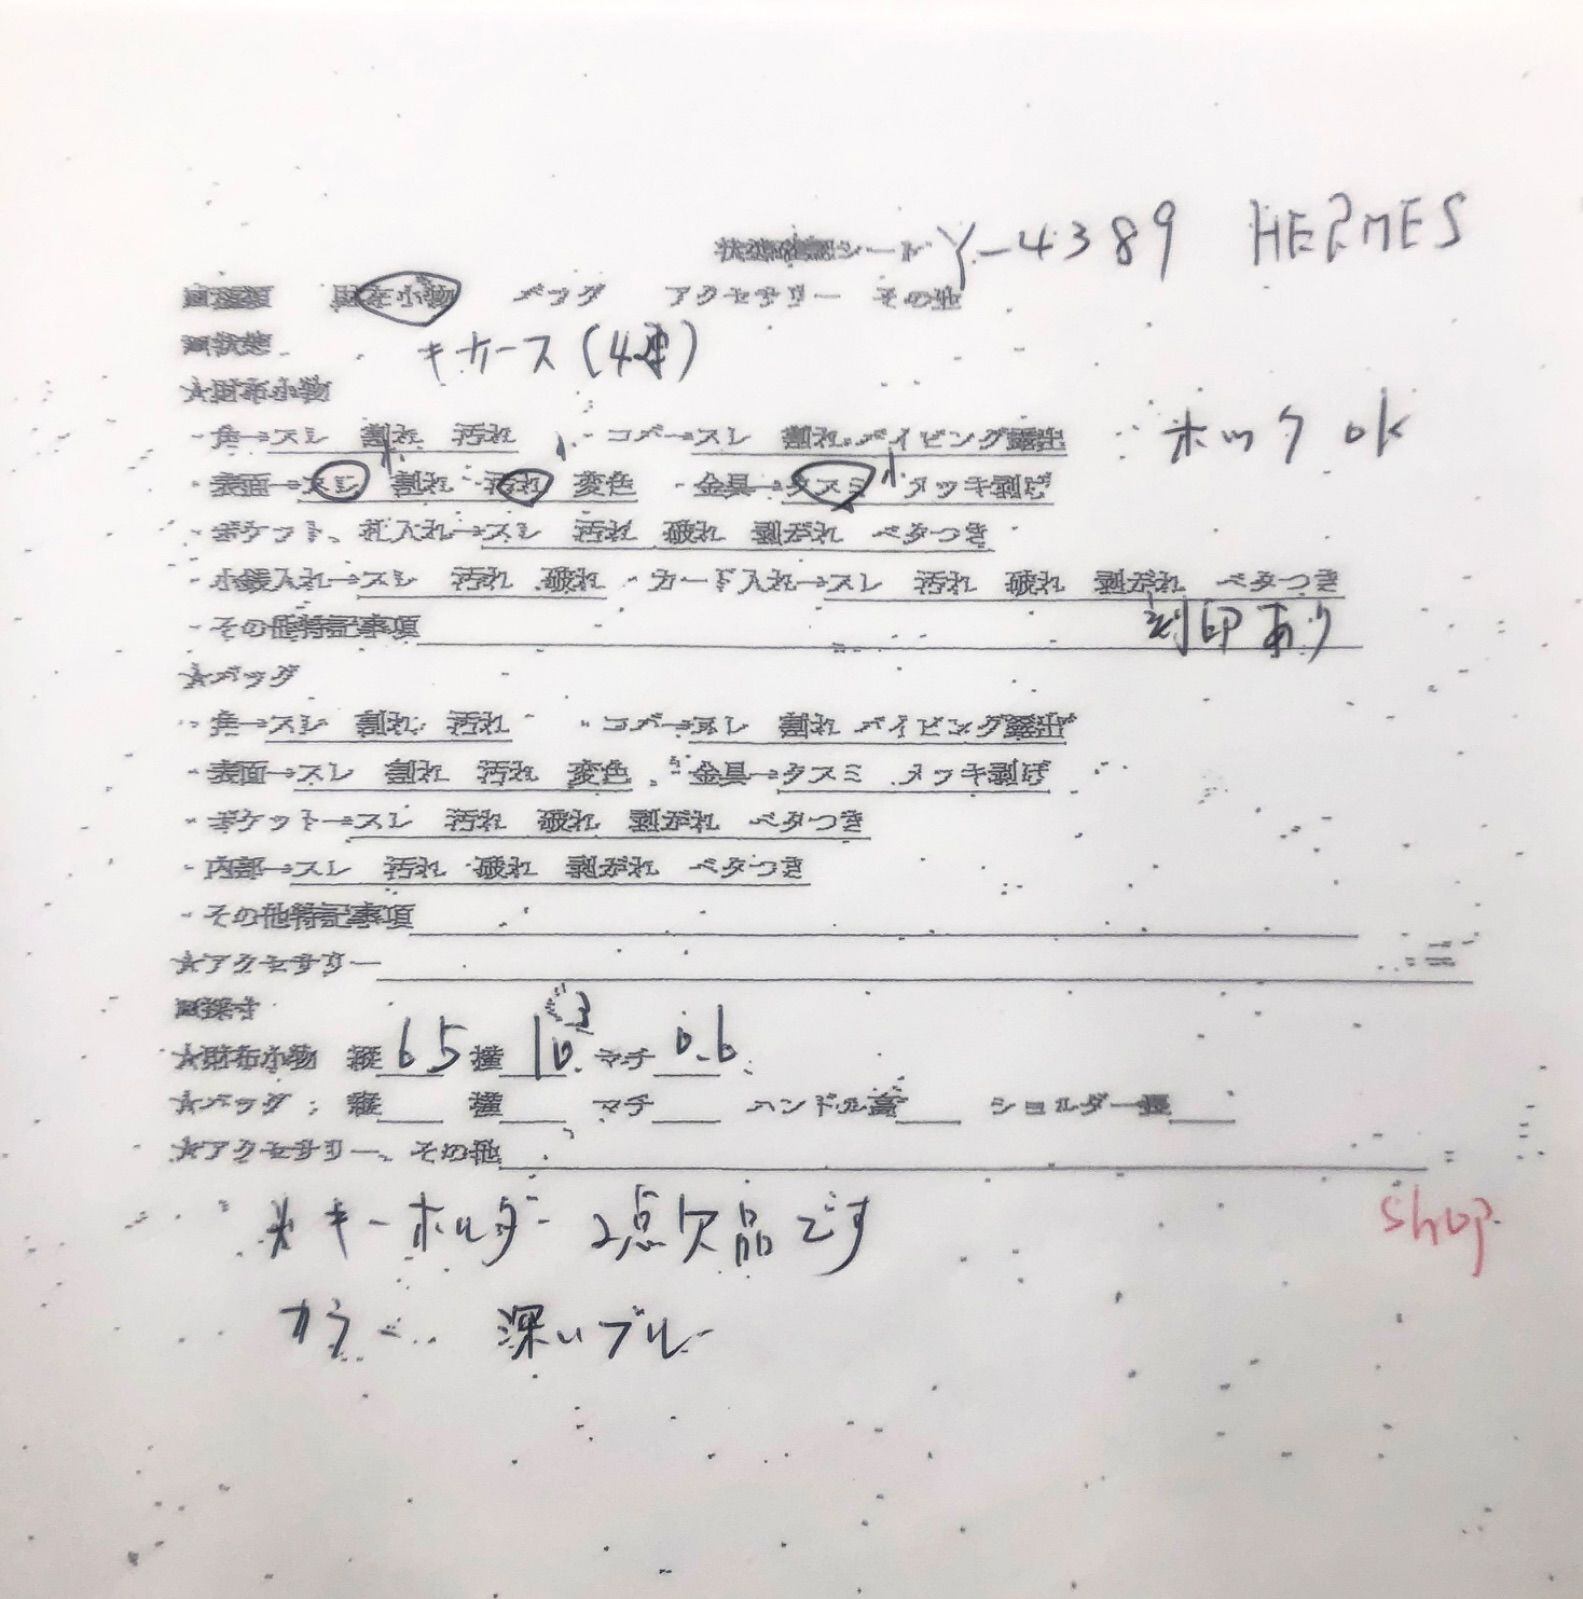 状態確認シート Y-4389 HERMES
■種類 財布小物 バッグ アクセサリー その他
■状態 キーケース(4連)
★財布小物
・角→スレ 割れ 汚れ ・コバ→スレ 割れ パイピング露出 ホック OK
・表面→スレ 小 割れ 汚れ 小 変色 ・金具→クスミ 小 メッキ剥げ
・ポケット、札入れ→スレ 汚れ 破れ 剥がれ ベタつき
・小銭入れ→スレ 汚れ 破れ ・カード入れ→スレ 汚れ 破れ 剥がれ ベタつき
・その他特記事項 刻印あり
★バッグ
・角→スレ 割れ 汚れ ・コバ→スレ 割れ パイピング露出
・表面→スレ 割れ 汚れ 変色 ・金具→クスミ メッキ剥げ
・ポケット→スレ 汚れ 破れ 剥がれ ベタつき
・内部→スレ 汚れ 破れ 剥がれ ベタつき
・その他特記事項
★アクセサリー
■採寸
★財布小物 縦 6.5 横 10. マチ 0.6
★バッグ 縦 横 マチ ハンドル高 ショルダー長
★アクセサリー、その他
※キーホルダー 2点欠品です
shop
カラー 深いブルー